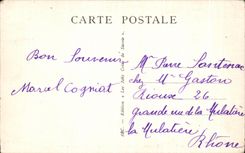 CARTE POSTALE
Bon Souvenir
Marcel Cogniat
Mr Pierre
chez Mr Gaston
26
grande rue de la Mulatière
la Mulatière
Rhône